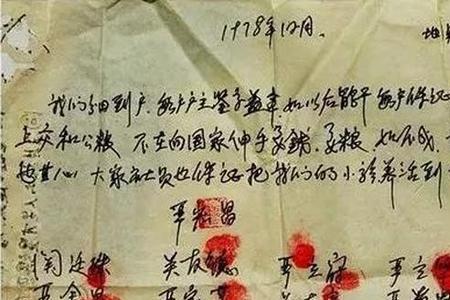 1978年12月. 地
我们分田到户 每户户主签字盖章 如以后能干 每户保证
上交和公粮 不在向国家伸手要钱 要粮 如不成
甘心 大家社员也保证把我们的小孩养活到
严宏昌
关廷珠 关友德 严立符